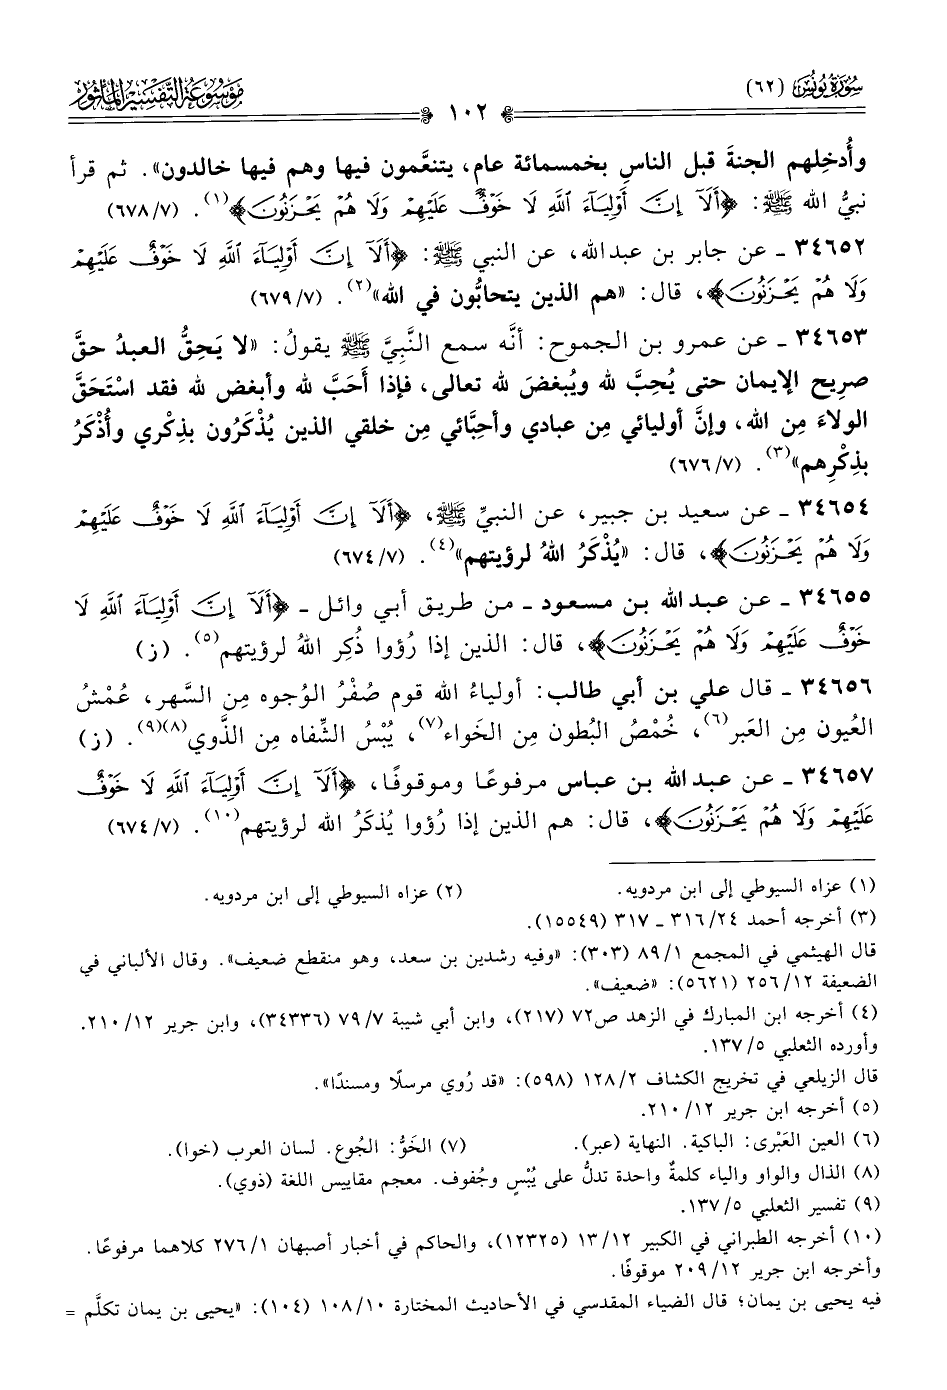 سُورَةُ يُونُسَ (٦٢)
مَوْسُوعَةُ التَّفْسِيرِ المَأْثُورِ
١٠٢
وأُدخِلهم الجنةَ قبل الناسِ بخمسمائة عام، يتنعَّمون فيها وهم فيها خالدون». ثم قرأ
نبيُّ الله ﷺ: ﴿أَلَآ إِنَّ أَوْلِيَآءَ ٱللَّهِ لَا خَوْفٌ عَلَيْهِمْ وَلَا هُمْ يَحْزَنُونَ﴾(١). (٦٧٨/٧)
٣٤٦٥٢ ـ عن جابر بن عبدالله، عن النبي ﷺ: ﴿أَلَآ إِنَّ أَوْلِيَآءَ ٱللَّهِ لَا خَوْفٌ عَلَيْهِمْ
وَلَا هُمْ يَحْزَنُونَ﴾، قال: «هم الذين يتحابُّون في الله»(٢). (٦٧٩/٧)
٣٤٦٥٣ ـ عن عمرو بن الجموح: أنَّه سمع النَّبِيَّ ﷺ يقولُ: «لا يَحِقُّ العبدُ حقَّ
صريح الإيمان حتى يُحِبَّ لله ويُبغضَ لله تعالى، فإذا أَحَبَّ لله وأبغض لله فقد اسْتَحَقَّ
الولاءَ مِن الله، وإنَّ أوليائي مِن عبادي وأحِبَّائي مِن خلقي الذين يُذْكَرُون بذِكْري وأُذْكَرُ
بذِكْرِهم»(٣). (٦٧٦/٧)
٣٤٦٥٤ ـ عن سعيد بن جبير، عن النبيِّ ﷺ، ﴿أَلَآ إِنَّ أَوْلِيَآءَ ٱللَّهِ لَا خَوْفٌ عَلَيْهِمْ
وَلَا هُمْ يَحْزَنُونَ﴾، قال: «يُذْكَرُ اللهُ لرؤيتهم»(٤). (٦٧٤/٧)
٣٤٦٥٥ ـ عن عبدالله بن مسعود ـ من طريق أبي وائل ـ ﴿أَلَآ إِنَّ أَوْلِيَآءَ ٱللَّهِ لَا
خَوْفٌ عَلَيْهِمْ وَلَا هُمْ يَحْزَنُونَ﴾، قال: الذين إذا رُؤوا ذُكِر اللهُ لرؤيتهم(٥). (ز)
٣٤٦٥٦ ـ قال علي بن أبي طالب: أولياءُ الله قوم صُفْرُ الوُجوه مِن السَّهر، عُمْشُ
العُيون مِن العَبر(٦)، خُمْصُ البُطون مِن الخَواء(٧)، يُبْسُ الشِّفاه مِن الذَّوي(٨)(٩). (ز)
٣٤٦٥٧ ـ عن عبدالله بن عباس مرفوعًا وموقوفًا، ﴿أَلَآ إِنَّ أَوْلِيَآءَ ٱللَّهِ لَا خَوْفٌ
عَلَيْهِمْ وَلَا هُمْ يَحْزَنُونَ﴾، قال: هم الذين إذا رُؤوا يُذكَرُ الله لرؤيتهم(١٠). (٦٧٤/٧)
(١) عزاه السيوطي إلى ابن مردويه. (٢) عزاه السيوطي إلى ابن مردويه.
(٣) أخرجه أحمد ٣١٦/٢٤ ـ ٣١٧ (١٥٥٤٩).
قال الهيثمي في المجمع ٨٩/١ (٣٠٣): «وفيه رشدين بن سعد، وهو منقطع ضعيف». وقال الألباني في
الضعيفة ٢٥٦/١٢ (٥٦٢١): «ضعيف».
(٤) أخرجه ابن المبارك في الزهد ص٧٢ (٢١٧)، وابن أبي شيبة ٧٩/٧ (٣٤٣٣٦)، وابن جرير ٢١٠/١٢.
وأورده الثعلبي ١٣٧/٥.
قال الزيلعي في تخريج الكشاف ١٢٨/٢ (٥٩٨): «قد رُوي مرسلًا ومسندًا».
(٥) أخرجه ابن جرير ٢١٠/١٢.
(٦) العين العَبْرى: الباكية. النهاية (عبر). (٧) الخَوُّ: الجُوع. لسان العرب (خوا).
(٨) الذال والواو والياء كلمةٌ واحدة تدلُّ على يُبْسٍ وجُفوف. معجم مقاييس اللغة (ذوي).
(٩) تفسير الثعلبي ١٣٧/٥.
(١٠) أخرجه الطبراني في الكبير ١٣/١٢ (١٢٣٢٥)، والحاكم في أخبار أصبهان ٢٧٦/١ كلاهما مرفوعًا.
وأخرجه ابن جرير ٢٠٩/١٢ موقوفًا.
فيه يحيى بن يمان؛ قال الضياء المقدسي في الأحاديث المختارة ١٠٨/١٠ (١٠٤): «يحيى بن يمان تكلَّم =